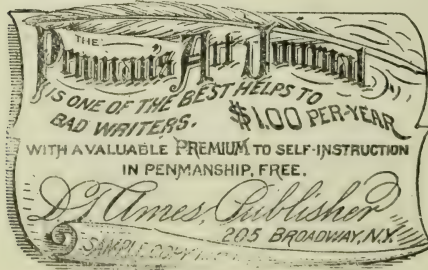 THE
Penman's Art Journal
IS ONE OF THE BEST HELPS TO
BAD WRITERS. $1.00 PER-YEAR
WITH A VALUABLE PREMIUM TO SELF-INSTRUCTION
IN PENMANSHIP, FREE.
D.T. Ames, Publisher
205 BROADWAY, N.Y.
SAMPLE COPY